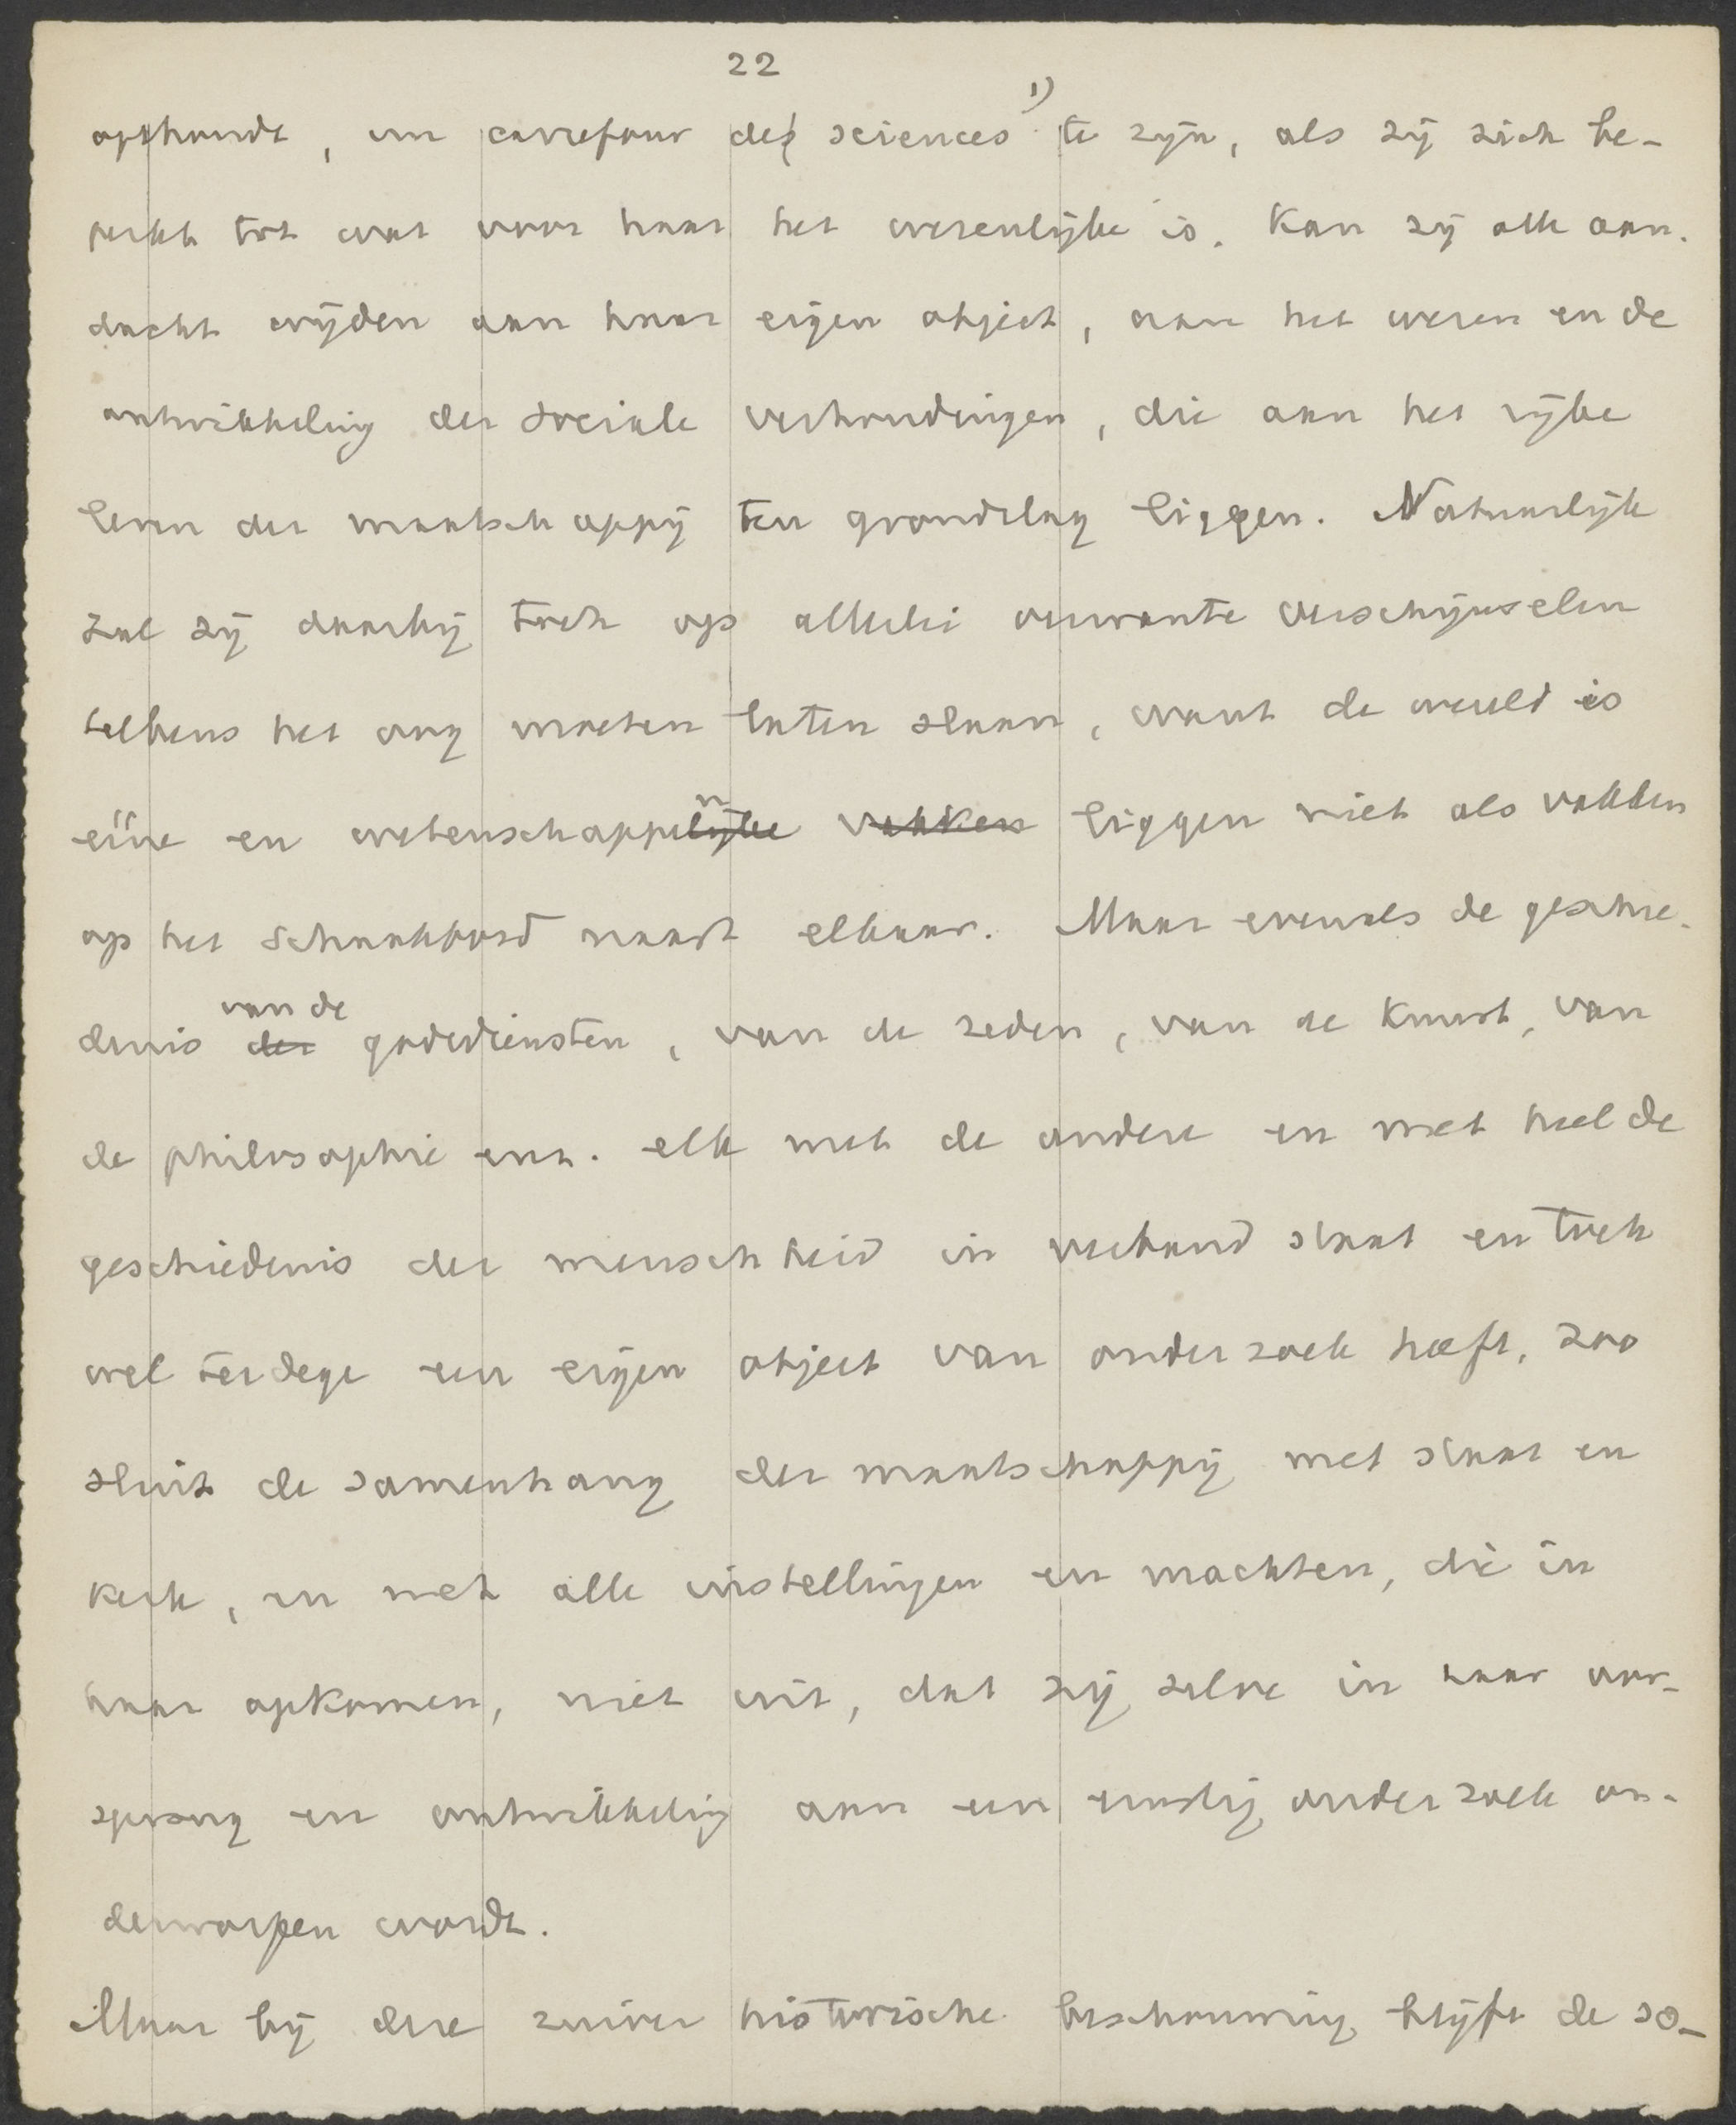 22
ophoudt, un carrefour des sciences 1) te zijn, als zij zich be-
perkt tot wat voor haar het wezenlijke is. Kan zij alle aan-
dacht wijden aan haar eigen object, aan het wezen en de
ontwikkeling der sociale verhoudingen, die aan het rijke
leven der maatschappij ten grondslag liggen. Natuurlijk
zal zij daarbij toch op allerlei verwante verschijnselen
telkens het oog moeten laten slaan, want de wereld is
eéne en wetenschappelijke vakken liggen niet als vakken
op het schaakbord naast elkaar. Maar evenals de geschie-
van de
denis der godsdiensten, van de zeden, van de kunst, van
de philosophie enz. elk met de andere en met heel de
geschiedenis der menschheid in verband staat en toch
wel terdege een eigen object van onderzoek heeft, zoo
sluit de samenhang der maatschappij met staat en
kerk, en met alle instellingen en machten, die in
haar opkomen, niet uit, dat zij zelve in haar oor-
sprong en ontwikkeling aan een ernstig onderzoek on-
derworpen wordt.
Maar bij deze zuiver historische beschouwing blijft de so-